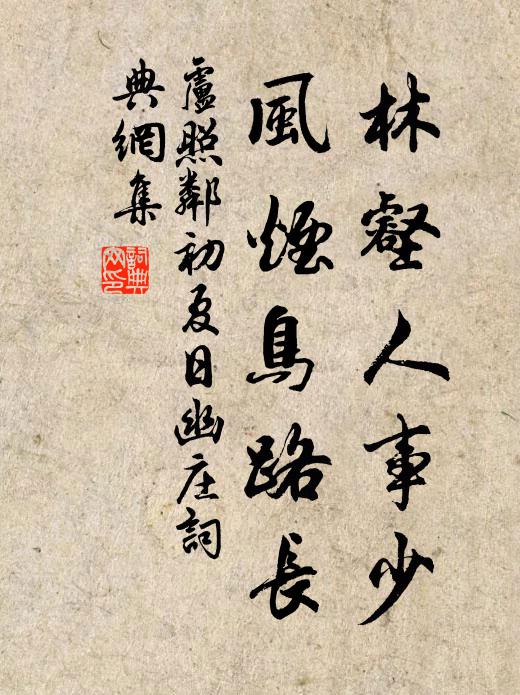 林壑人事少
風煙鳥路長
盧照鄰初夏日幽庄詞
典網集
詞典
网印